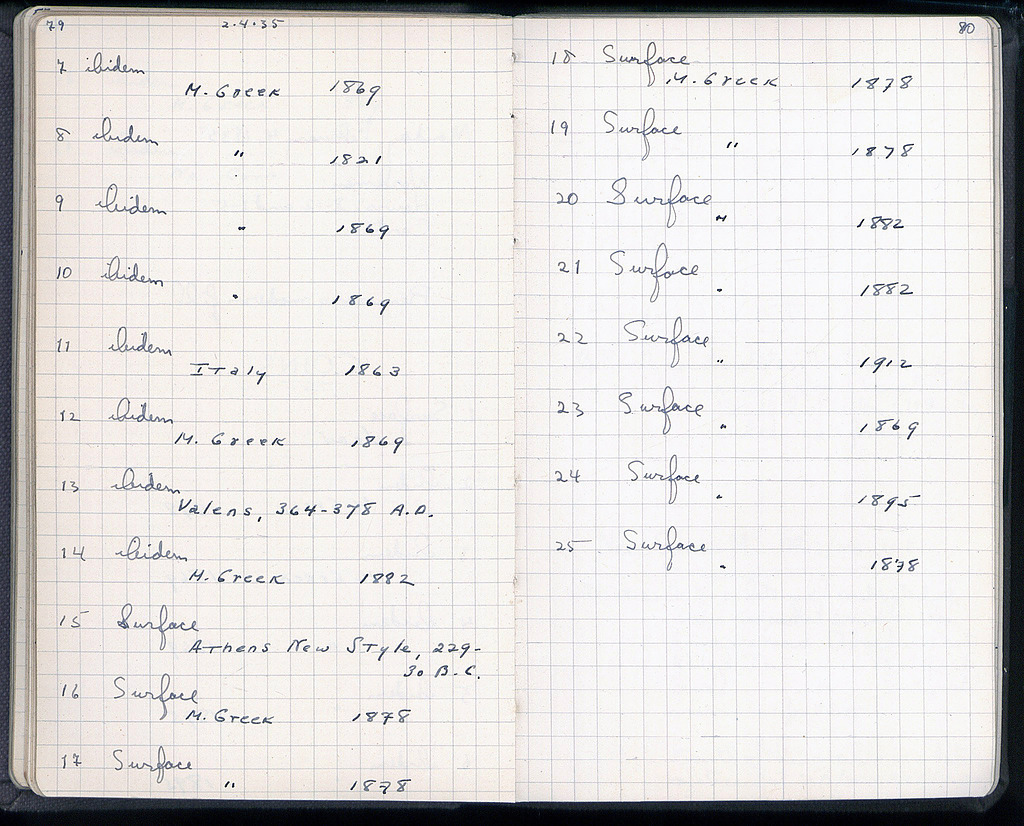 79 2.4.35
7 ibidem
M. Greek 1869
8 ibidem
" 1821
9 ibidem
" 1869
10 ibidem
" 1869
11 ibidem
Italy 1863
12 ibidem
M. Greek 1869
13 ibidem
Valens, 364-378 A.D.
14 ibidem
M. Greek 1882
15 Surface
Athens New Style, 229-
30 B.C.
16 Surface
M. Greek 1878
17 Surface
" 1878
80
18 Surface
M. Greek 1878
19 Surface
" 1878
20 Surface
" 1882
21 Surface
" 1882
22 Surface
" 1912
23 Surface
" 1869
24 Surface
" 1895
25 Surface
" 1878